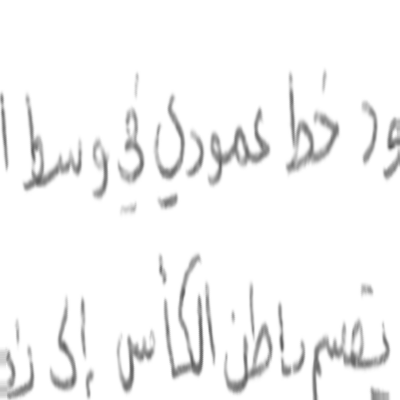 ود خط عمودي في وسط ا
يقسم باطن الكأس إلى